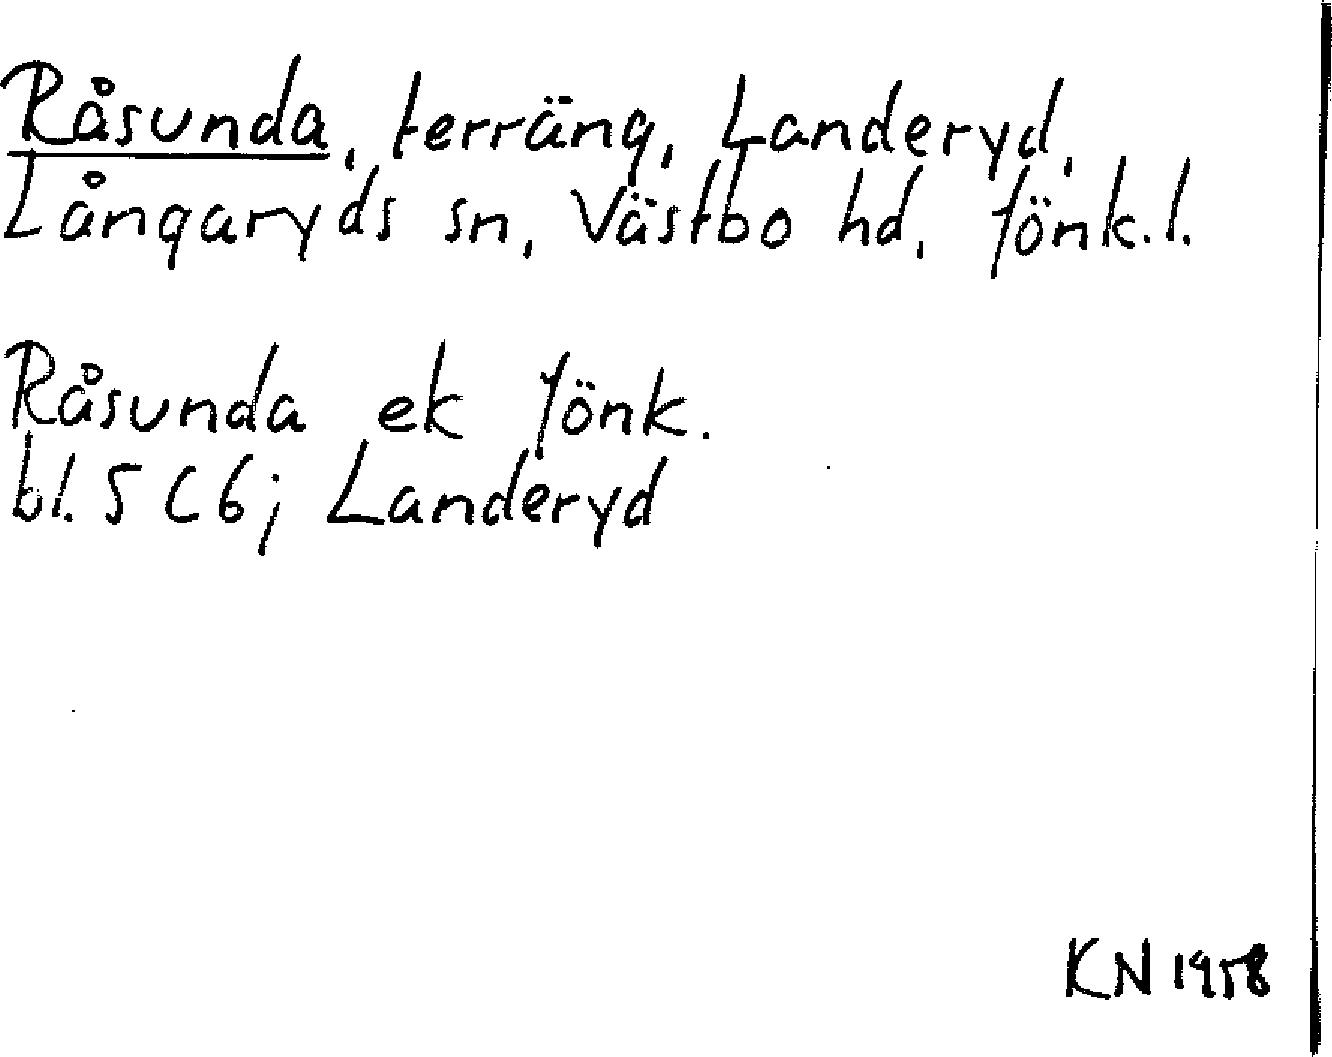 Råsunda, terräng, Landeryd,
Långaryds sn, Västbo hd, Jönk.l.
Råsunda ek Jönk.
bl. 5 C6; Landeryd
KN 1958